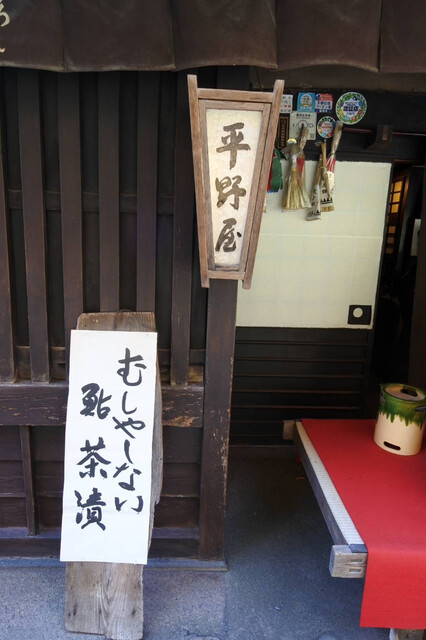 平野屋
むしやしない
鮎茶漬